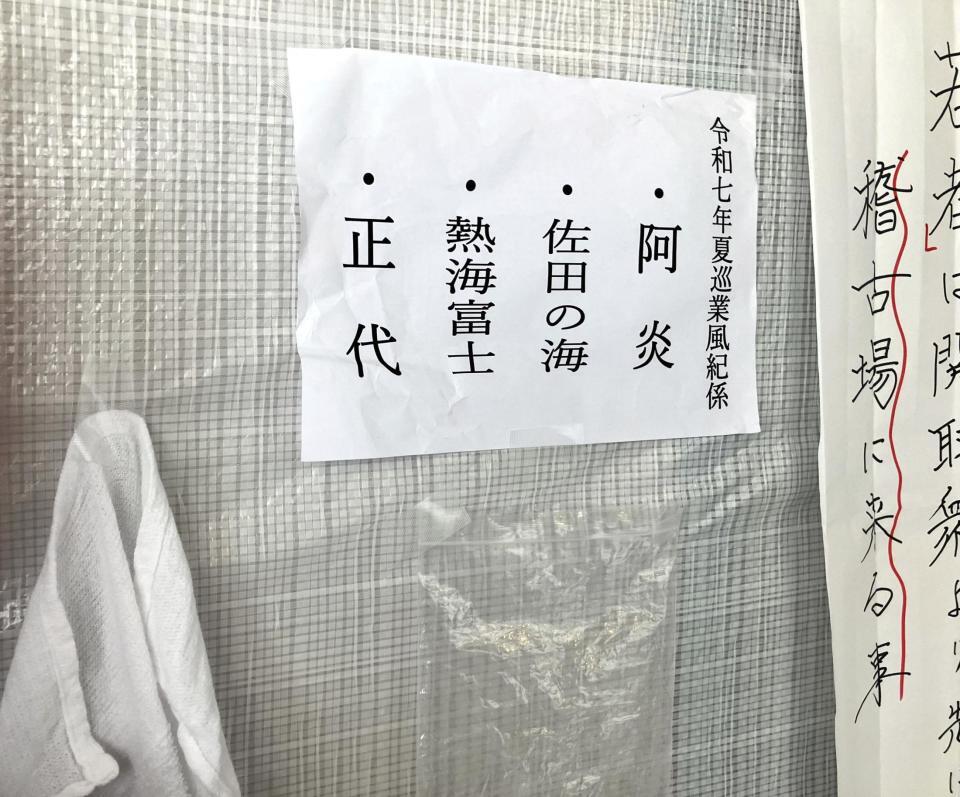 若者は関取衆より先に
稽古場に来る事
令和七年夏巡業風紀係
・阿炎
・佐田の海
・熱海富士
・正代